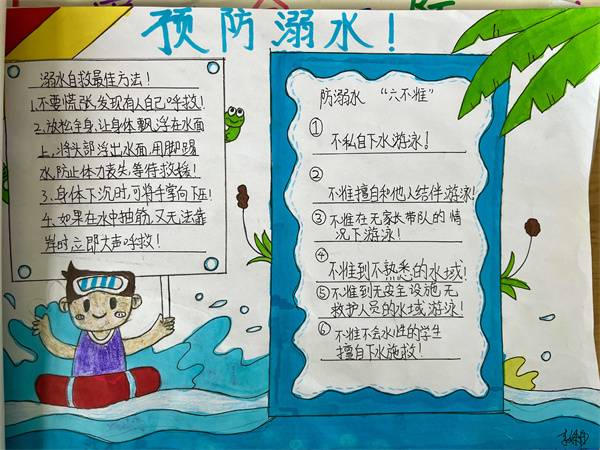 预防溺水！
溺水自救最佳方法！
1.不要慌张,发现有人自己呼救！
2.放松全身,让身体飘浮在水面
上,将头部浮出水面,用脚踢
水,防止体力丧失,等待救援！
3、身体下沉时,可将手掌向下压！
4、如果在水中抽筋,又无法靠
岸时立即大声呼救！
防溺水 “六不准”
① 不私自下水游泳！
② 不准擅自和他人结伴游泳！
③ 不准在无家长带队的情
况下游泳！
④ 不准到不熟悉的水域！
⑤ 不准到无安全设施,无
救护人员的水域游泳！
⑥ 不准不会水性的学生
擅自下水施救！